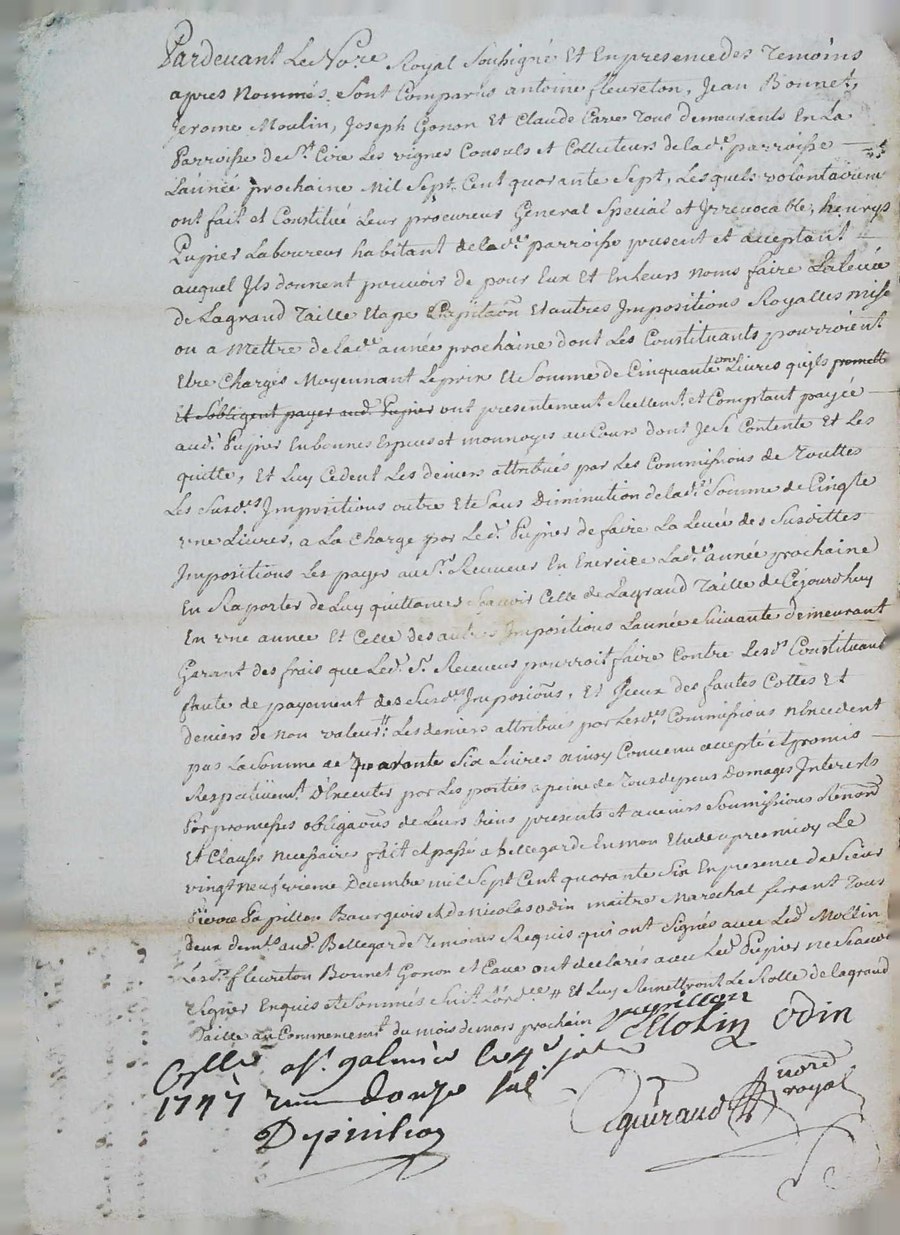 Pardevant Le No.re Royal Soubsigné Et En presence des Temoins
apres Nommés, Sont Comparus antoine fleureton, Jean Bonnet,
Jerome Moulin, Joseph Gonon Et Claude Cave Tous demeurants En La
Parroisse de St. Cire Les vignes Consuls et Collecteurs de lad.e parroisse
L'année prochaine Mil Sept Cent quarante Sept, Lesquels volontairem.t
ont fait et Constitué Leur procureur General Special et Irrevocable, henrys
Pupier Laboureur habitant de lad.e parroisse present et acceptant
auquel Ils donnent pouvoir de pour Eux Et En leurs noms faire La levée
de La grand Taille Etape Capitaon Et autres Impositions Royalles mise
ou a Mettre de lad.e année prochaine dont Les Constituants pourroient
Etre Chargés Moyennant Le prix Et Somme de Cinquante une Livres qu'ils promett
Et Sobligent payer aud. Pupier ont presentement Reellem.t et Comptant payée
aud. Pupier En bonnes Espices et monnoyes au Cours dont Je Se Contente Et Les
quitte, Et Luy Cedent Les deniers attribués par Les Commissions de Touttes
Les Susd.es Impositions outre Et Sans Diminution de lad.e Somme de Cinq.te
vne Livres, a La Charge par Led. Pupier de faire La Levée des Susdittes
Impositions Les payer au S.r Receveur En Exercice Lad.e année prochaine
En Raporter de Luy quittances Scavoir Celle de La grand Taille de Cejourdhuy
En vne année Et Celle des autres Impositions L'année Suivante demeurant
Garant des frais que Led. S.r Receveur pourroit faire Contre Lesd. Constituant
faute de payement des Susd.es Imposions, Et Iceux des fautes Cottes Et
deniers de non valeur Les deniers attribués par Lesd.es Commissions n'Excedent
pas La Somme de quarante Six Livres ainsy Convenu accepté et promis
Respectivem.t D'Executer par Les parties a peine de Tous depens Domages Interets
Par promesses obligaons de Leurs biens presents et avenirs Soumissions Renonō
Et Clauses necessaires fait et passé a bellegarde En mon Etude apres midy Le
vingt neuf vieme Decembre mil Sept Cent quarante Six En presence de Sieur
Pierre Papillon Bourgeois et de Nicolas odin maitre Marechal ferrant Tous
deux dem.ts aud. Bellegarde Temoins Requis qui ont Signés avec Led. Mollin
Lesd. fleureton Bonnet Gonon et Cave ont declarés avec Led. Pupier ne Scavoir
Signer Enquis et Sommés Suit Lord.ce # Et Luy Remettront Le Rolle de La grand
Taille au Commencem.t du mois de mars prochain papillon
Mollin odin
Cll a St. galmier le 4e
1747 Recu douze sols
Depinhac
guiraud nore royal